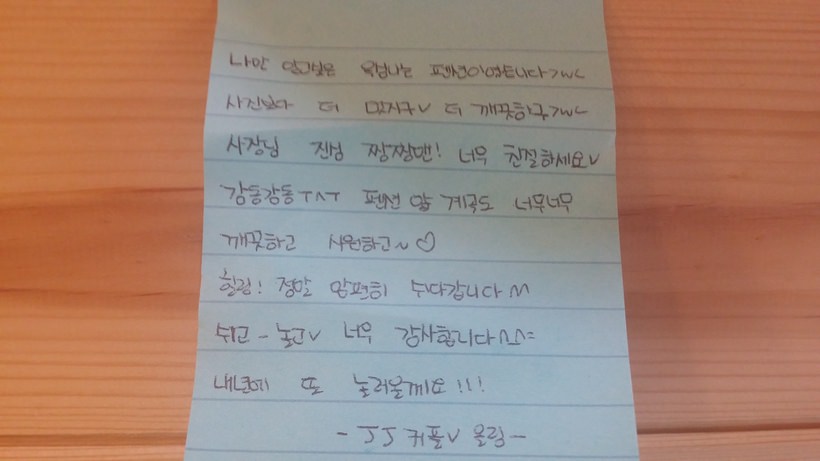 나만 알고싶은 욕심나는 펜션이였습니다>w<
사진보다 더 멋지구v 더 깨끗하구>w<
사장님 진심 짱짱맨! 너무 친절하세요v
감동감동ㅜㅅㅜ 펜션 앞 계곡도 너무너무
깨끗하고 시원하고~♡
힐링! 정말 맘편히 쉬다갑니다^^
쉬고-놀고v 너무 감사합니다^^=
내년에 또 놀러올께요!!!
- JJ커플v 올림-